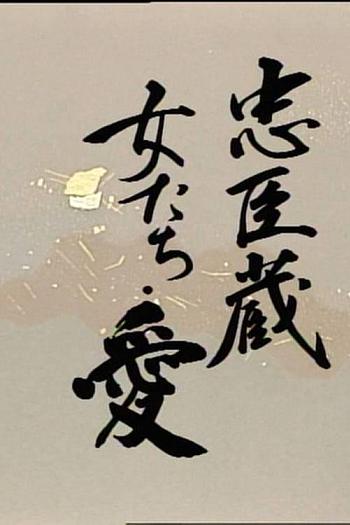 忠臣蔵
女たち・愛